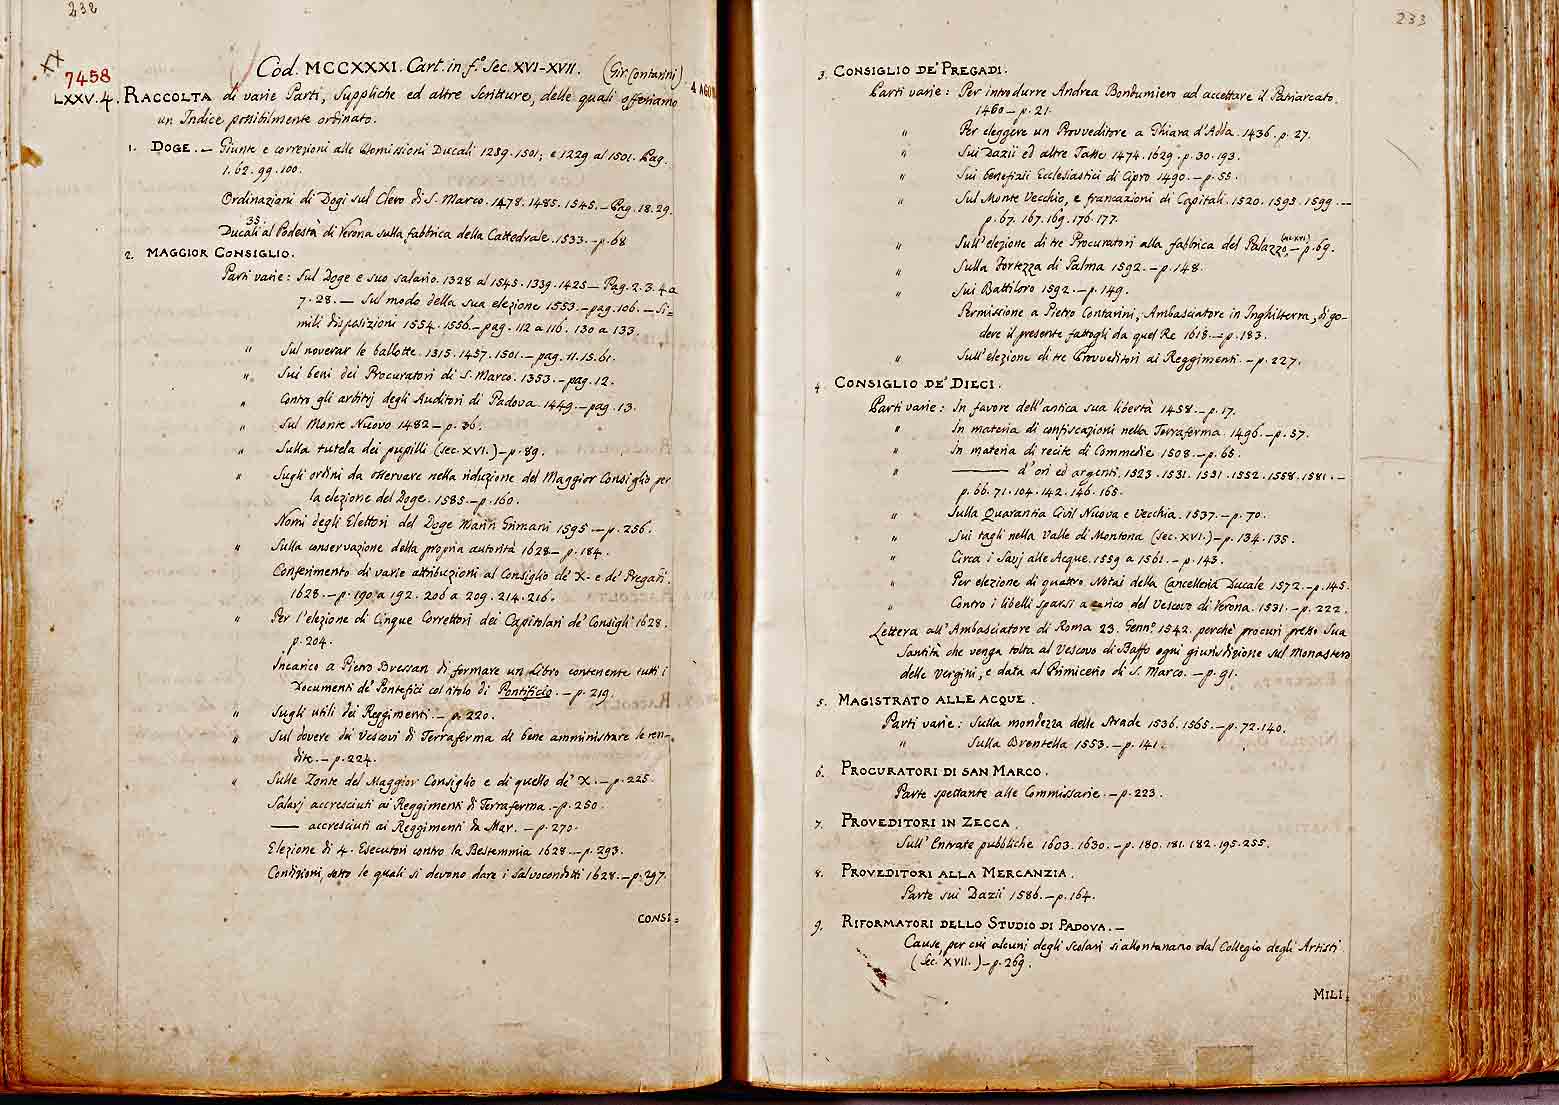 232
XX
7458
Cod. MCCXXXI. Cart. in f.º Sec. XVI-XVII. (Gir. Contarini)
LXXV.4. RACCOLTA di varie Parti, Suppliche ed altre Scritture, delle quali offeriamo
un Indice possibilmente ordinato.
1. DOGE. — Giunte e correzioni alle Commissioni Ducali 1289.1501; e 1229 al 1501. Pag.
1. 62. 99. 100.
Ordinazioni di Dogi sul Clero di S. Marco. 1478. 1485. 1545. — Pag. 18. 29.
35.
Ducali al Podestà di Verona sulla fabbrica della Cattedrale. 1533. — p. 68
2. MAGGIOR CONSIGLIO.
Parti varie: Sul Doge e suo salario. 1328 al 1545. 1339. 1425 — Pag. 2. 3. 4 a
7. 28. — Sul modo della sua elezione 1553. — pag. 106. — Si=
mili disposizioni 1554. 1556. — pag. 112 a 116. 130 a 133.
" Sul noverar le ballotte. 1315. 1457. 1501. — pag. 11. 15. 61.
" Sui beni dei Procuratori di S. Marco. 1353. — pag. 12.
" Contro gli arbitrj degli Auditori di Padova. 1449. — pag. 13.
" Sul Monte Nuovo 1482 — p. 36.
" Sulla tutela dei pupilli (sec. XVI.) — p. 89.
" Sugli ordini da osservare nella riduzione del Maggior Consiglio per
la elezione del Doge. 1585. — p. 160.
Nomi degli Elettori del Doge Marin Grimani 1595 — p. 256.
" Sulla conservazione della propria autorità 1628 — p. 184.
Conferimento di varie attribuzioni al Consiglio de' X. e de' Pregadi.
1628. — p. 190 a 192. 206 a 209. 214. 216.
" Per l'elezione di Cinque Correttori dei Capitolari de' Consigli 1628.
p. 204.
Incarico a Piero Bressan di formare un Libro contenente tutti i
Documenti de' Pontefici col titolo di Pontificio. — p. 219.
" Sugli utili dei Reggimenti. — p. 220.
" Sul dovere dei Vescovi di Terraferma di bene amministrare le ren=
dite. — p. 224.
" Sulle Zonte del Maggior Consiglio e di quello de' X. — p. 225
Salarj accresciuti ai Reggimenti di Terraferma. — p. 250.
—— accresciuti ai Reggimenti da Mar. — p. 270.
Elezione di 4. Esecutori contro la Bestemmia 1628. — p. 293.
Condizioni, sotto le quali si devono dare i salvocondotti 1628. — p. 297.
CONSI=
233
3. CONSIGLIO DE' PREGADI.
Parti varie: Per introdurre Andrea Bondumiero ad accettare il Patriarcato.
1460 — p. 21.
" Per eleggere un Provveditore a Ghiara d'Adda. 1436. p. 27.
" Sui Dazii ed altre Tasse 1474. 1629. p. 30. 193.
" Sui benefizii Ecclesiastici di Cipro 1490. — p. 55.
" Sul Monte Vecchio, e francazioni di Capitali. 1520. 1595. 1599. —
p. 67. 167. 169. 176. 177.
" Sull'elezione di tre Procuratori alla fabbrica del Palazzo — p. 69.
" Sulla Fortezza di Palma 1592. — p. 148.
" Sui Battiloro 1592. — p. 149.
Permissione a Pietro Contarini, Ambasciatore in Inghilterra, di go-
dere il presente fattogli da quel Re 1618. — p. 183.
" Sull'elezione di tre Provveditori ai Reggimenti. — p. 227.
4. CONSIGLIO DE' DIECI.
Parti varie: In favore dell'antica sua libertà 1458. — p. 17.
" In materia di confiscazioni nella Terraferma. 1496. — p. 57.
" In materia di recite di Commedie 1508. — p. 65.
" —— d'ori ed argenti. 1523. 1531. 1531. 1552. 1558. 1581. —
p. 66. 71. 104. 142. 146. 165.
" Sulla Quarantia Civil Nuova e Vecchia. 1537. — p. 70.
" Sui tagli nella Valle di Montona (sec. XVI.) — p. 134. 135.
" Circa i Savj alle Acque. 1559 a 1561. — p. 143.
" Per elezione di quattro Notai della Cancelleria Ducale 1572. — p. 145.
" Contro i libelli sparsi a carico del Vescovo di Verona. 1531. — p. 222.
Lettera all'Ambasciatore di Roma 23. Genn.º 1542. perchè procuri presso Sua
Santità che venga tolta al Vescovo di Baffo ogni giurisdizione sul Monastero
delle Vergini, e data al Primicerio di S. Marco. — p. 91.
5. MAGISTRATO ALLE ACQUE.
Parti varie: Sulla mondezza delle strade 1536. 1565. — p. 72. 140.
" Sulla Brentella 1553. — p. 141.
6. PROCURATORI DI SAN MARCO.
Parte spettante alle Commissarie. — p. 223.
7. PROVEDITORI IN ZECCA.
Sull'Entrate pubbliche 1603. 1630. — p. 180. 181. 182. 195. 255.
8. PROVEDITORI ALLA MERCANZIA.
Parte sui Dazii 1586. — p. 164.
9. RIFORMATORI DELLO STUDIO DI PADOVA. —
Cause, per cui alcuni degli scolari si allontanano dal Collegio degli Artisti
(Sec. XVII.) — p. 269.
MILI=